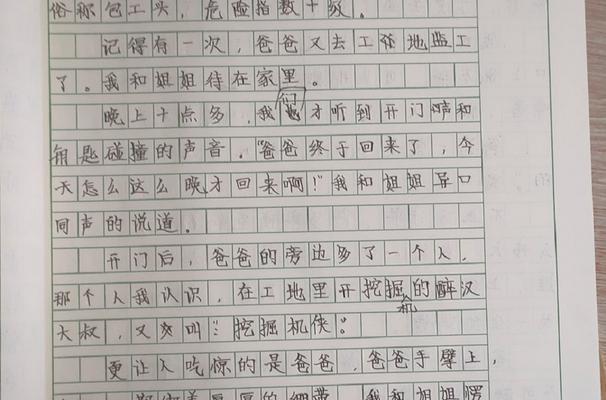 俗称包工头，危险指数十级。
记得有一次，爸爸又去工地监工
了。我和姐姐待在家里。
晚上十点多，我们才听到开门声和
钥匙碰撞的声音。“爸爸终于回来了，今
天怎么这么晚才回来啊！”我和姐姐异口
同声的说道。
开门后，爸爸的旁边多了一个人，
那个人我认识，在工地里开挖掘机的醉汉
大叔，又叫“挖掘机侠”。
更让人吃惊的是爸爸，爸爸手臂上，
厚厚的绷带，我和姐姐愣